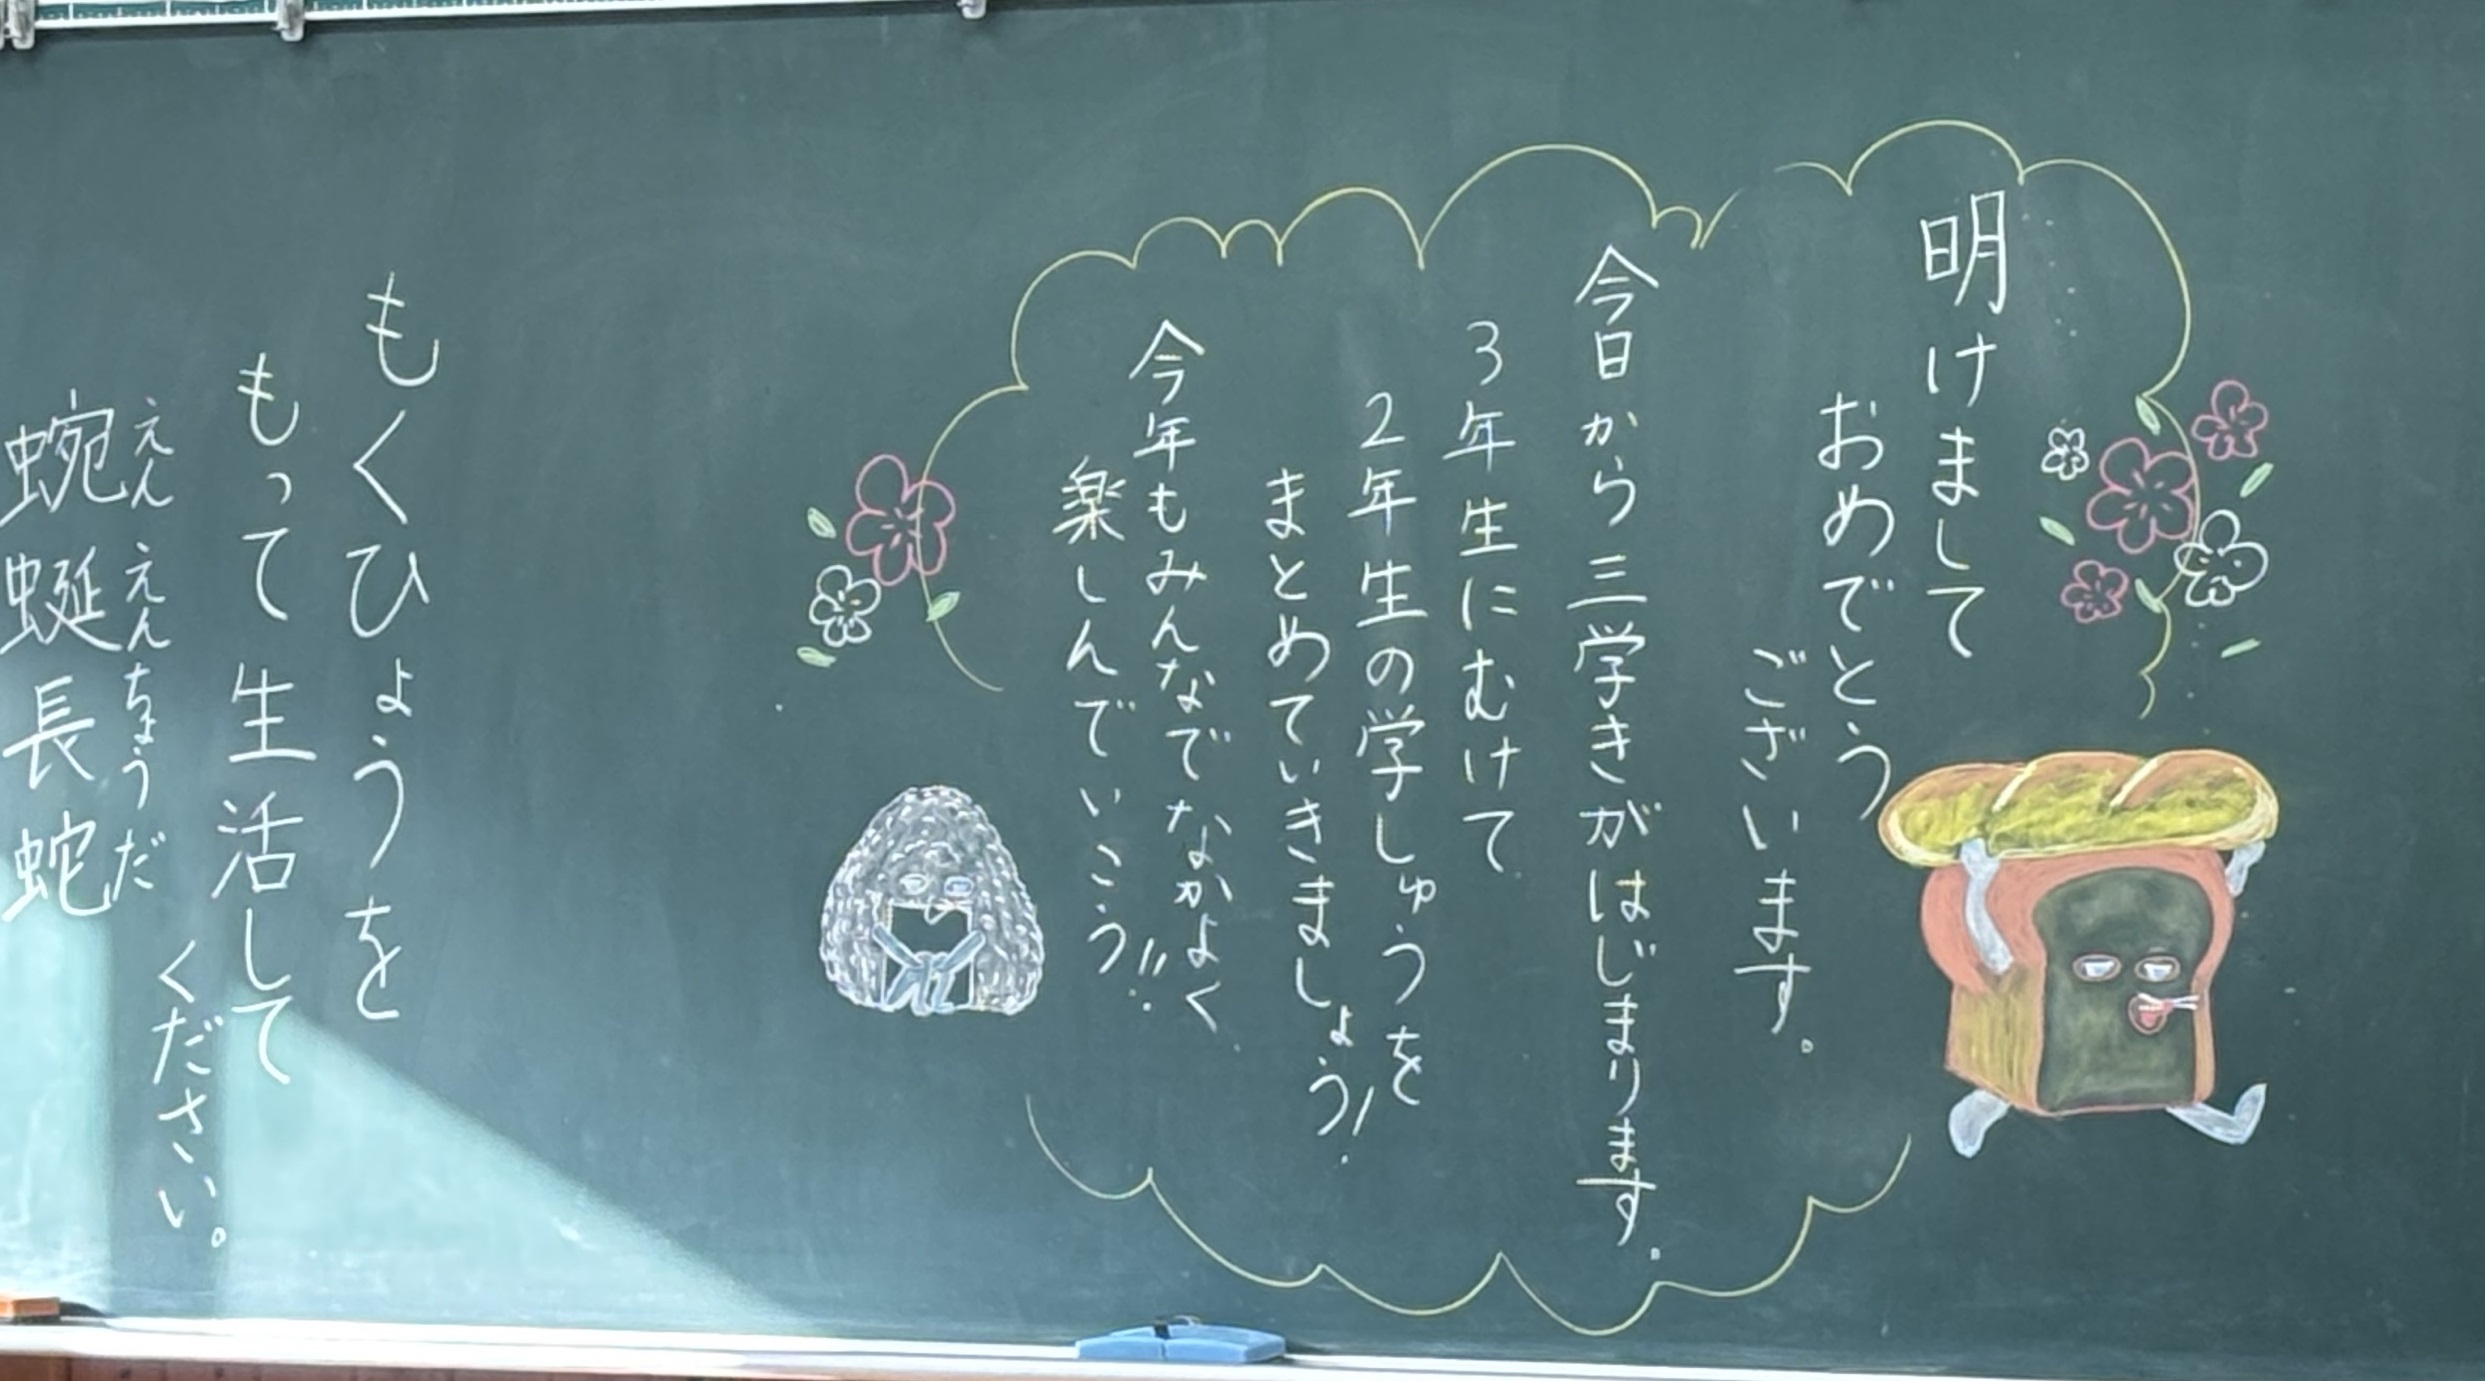 明けまして
おめでとう
ございます。
今日から三学きがはじまります。
3年生にむけて
2年生の学しゅうを
まとめていきましょう!
今年もみんなでなかよく
楽しんでいこう!!
もくひょうを
もって生活して
ください。
えんえんちょうだ
蜿蜒長蛇